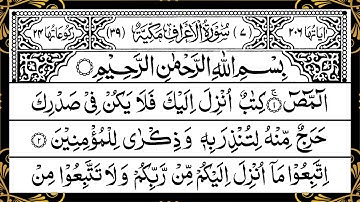 اٰيَاتُهَا ٢٠٦ (٧) سُوْرَةُ الْاَعْرَافِ مَكِّيَّةٌ (٣٩) رُكُوْعَاتُهَا ٢٤
بِسْمِ اللّٰهِ الرَّحْمٰنِ الرَّحِيْمِ
الٓمّٓصٓ ١ كِتٰبٌ اُنْزِلَ اِلَيْكَ فَلَا يَكُنْ فِيْ صَدْرِكَ
حَرَجٌ مِّنْهُ لِتُنْذِرَ بِهٖ وَذِكْرٰى لِلْمُؤْمِنِيْنَ ٢
اِتَّبِعُوْا مَآ اُنْزِلَ اِلَيْكُمْ مِّنْ رَّبِّكُمْ وَلَا تَتَّبِعُوْا مِنْ